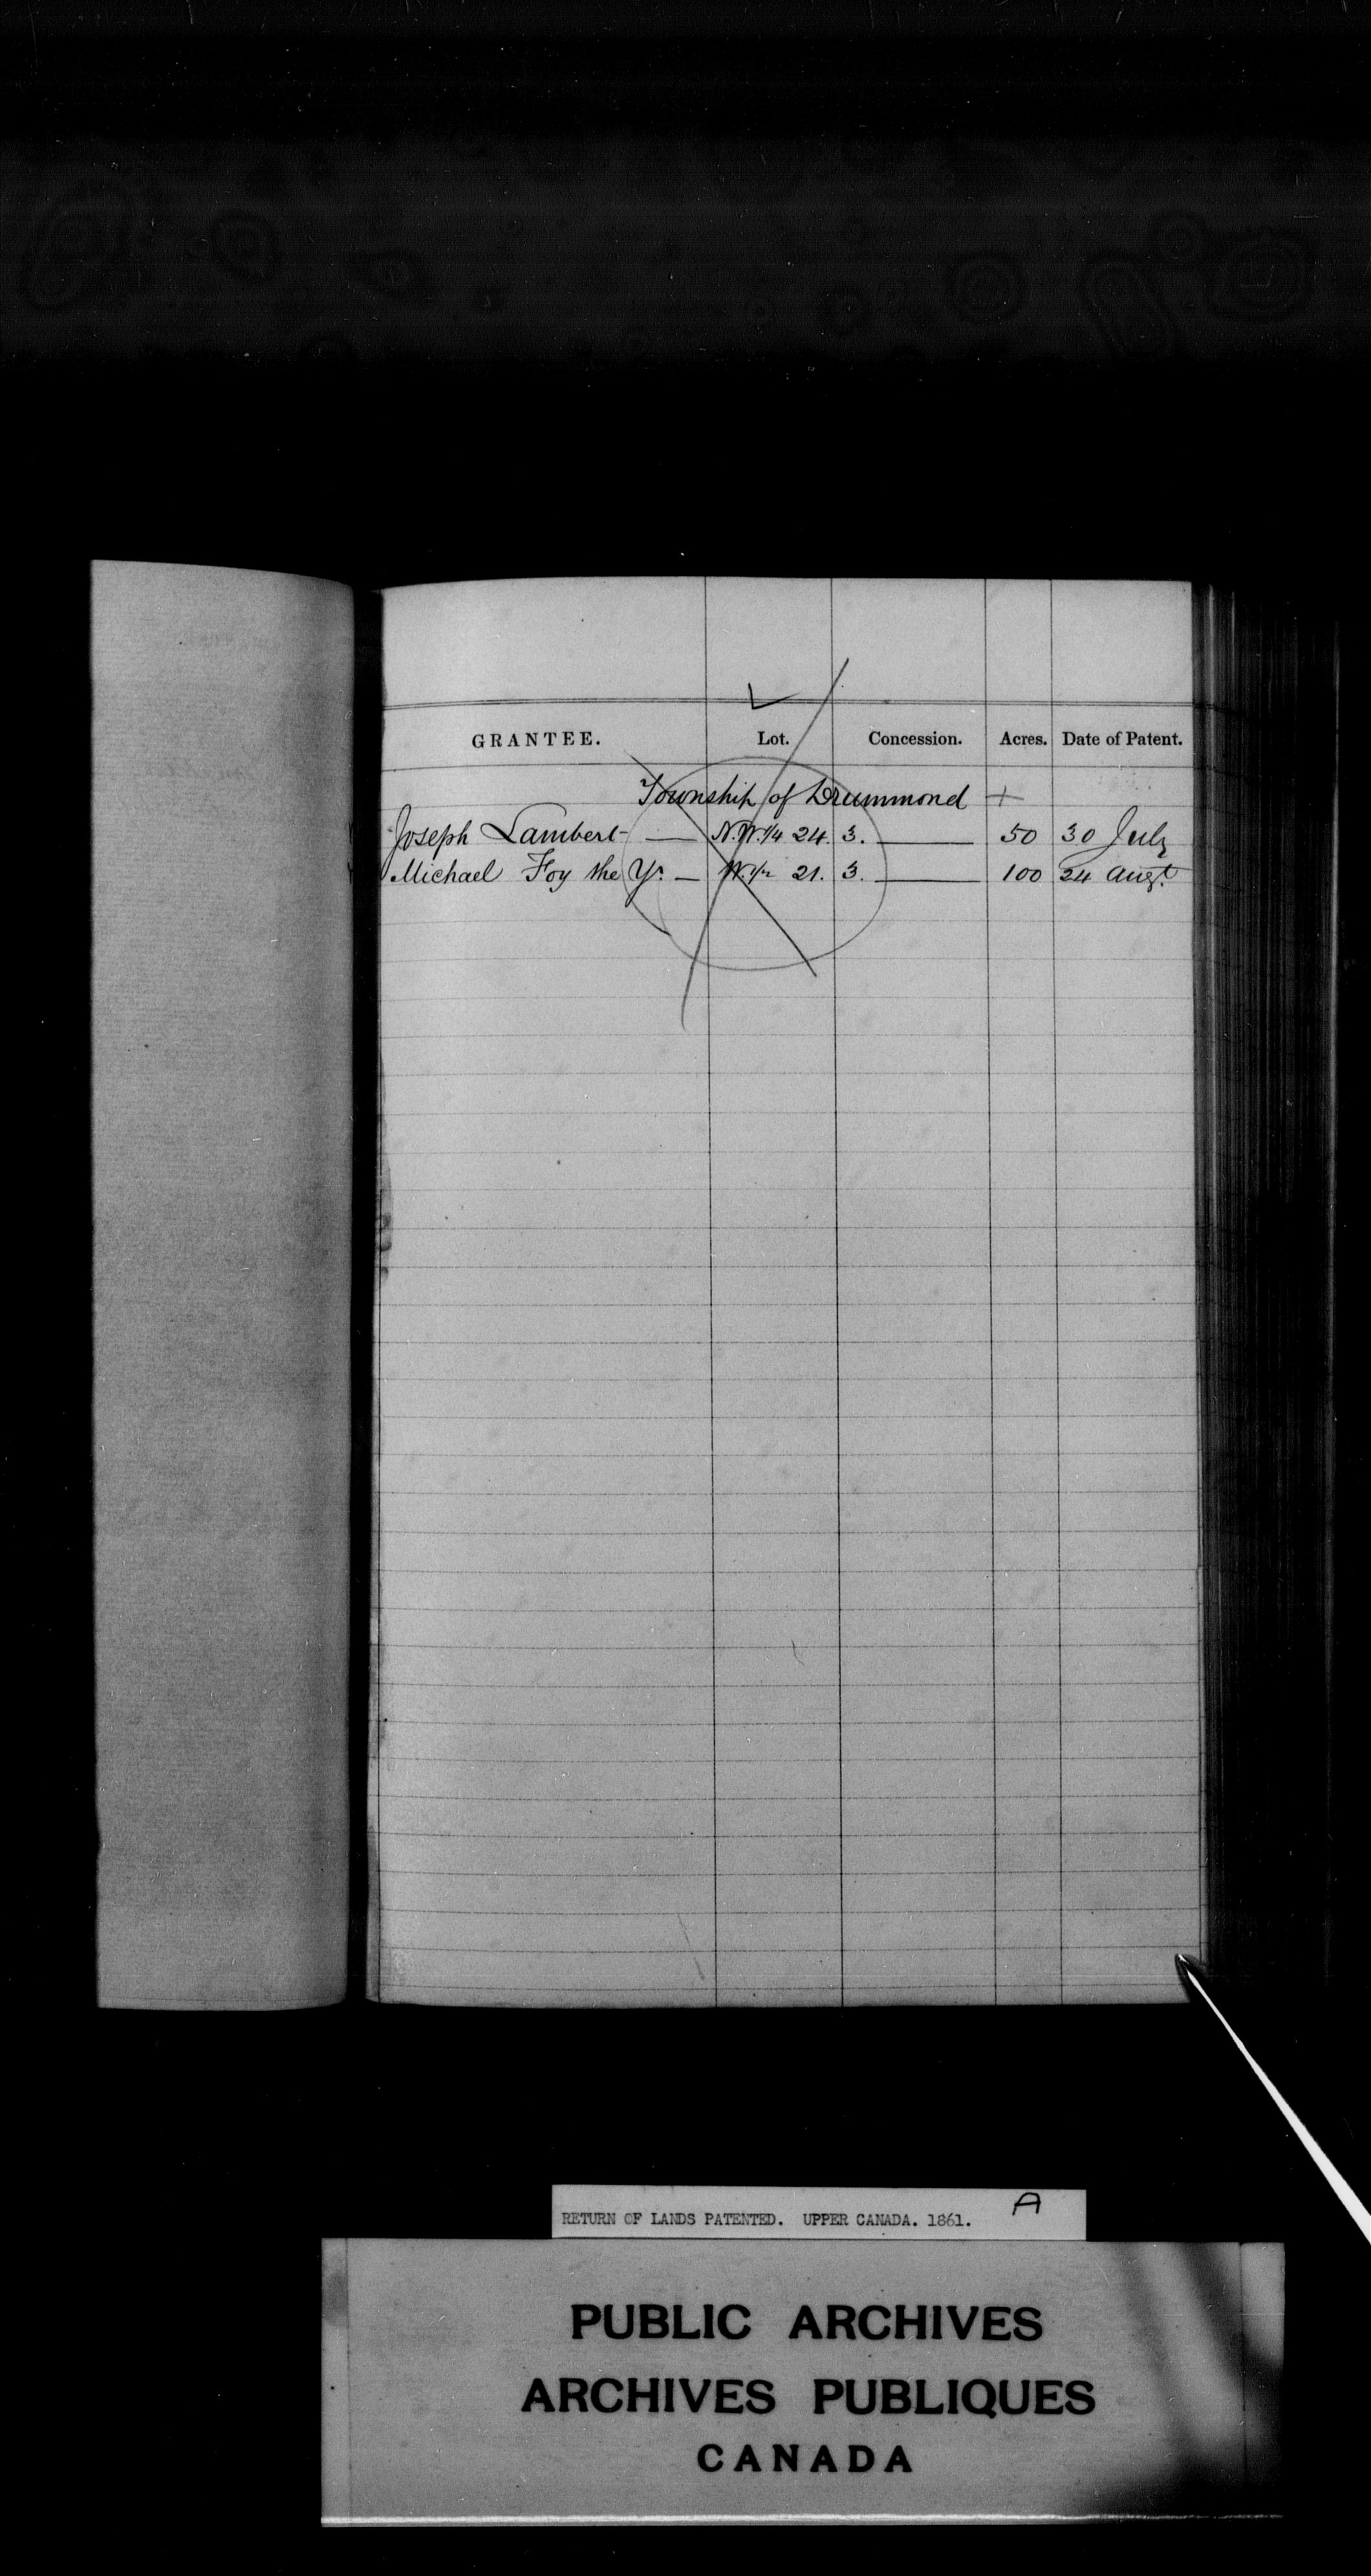 GRANTEE. Lot. Concession. Acres. Date of Patent.
Township of Drummond +
Joseph Lambert — N.W. 1/4 24. 3. — 50 30 July
Michael Foy the Yr. — W. 1/2 21. 3. — 100 24 Augt.
RETURN OF LANDS PATENTED. UPPER CANADA. 1861. A
PUBLIC ARCHIVES
ARCHIVES PUBLIQUES
CANADA